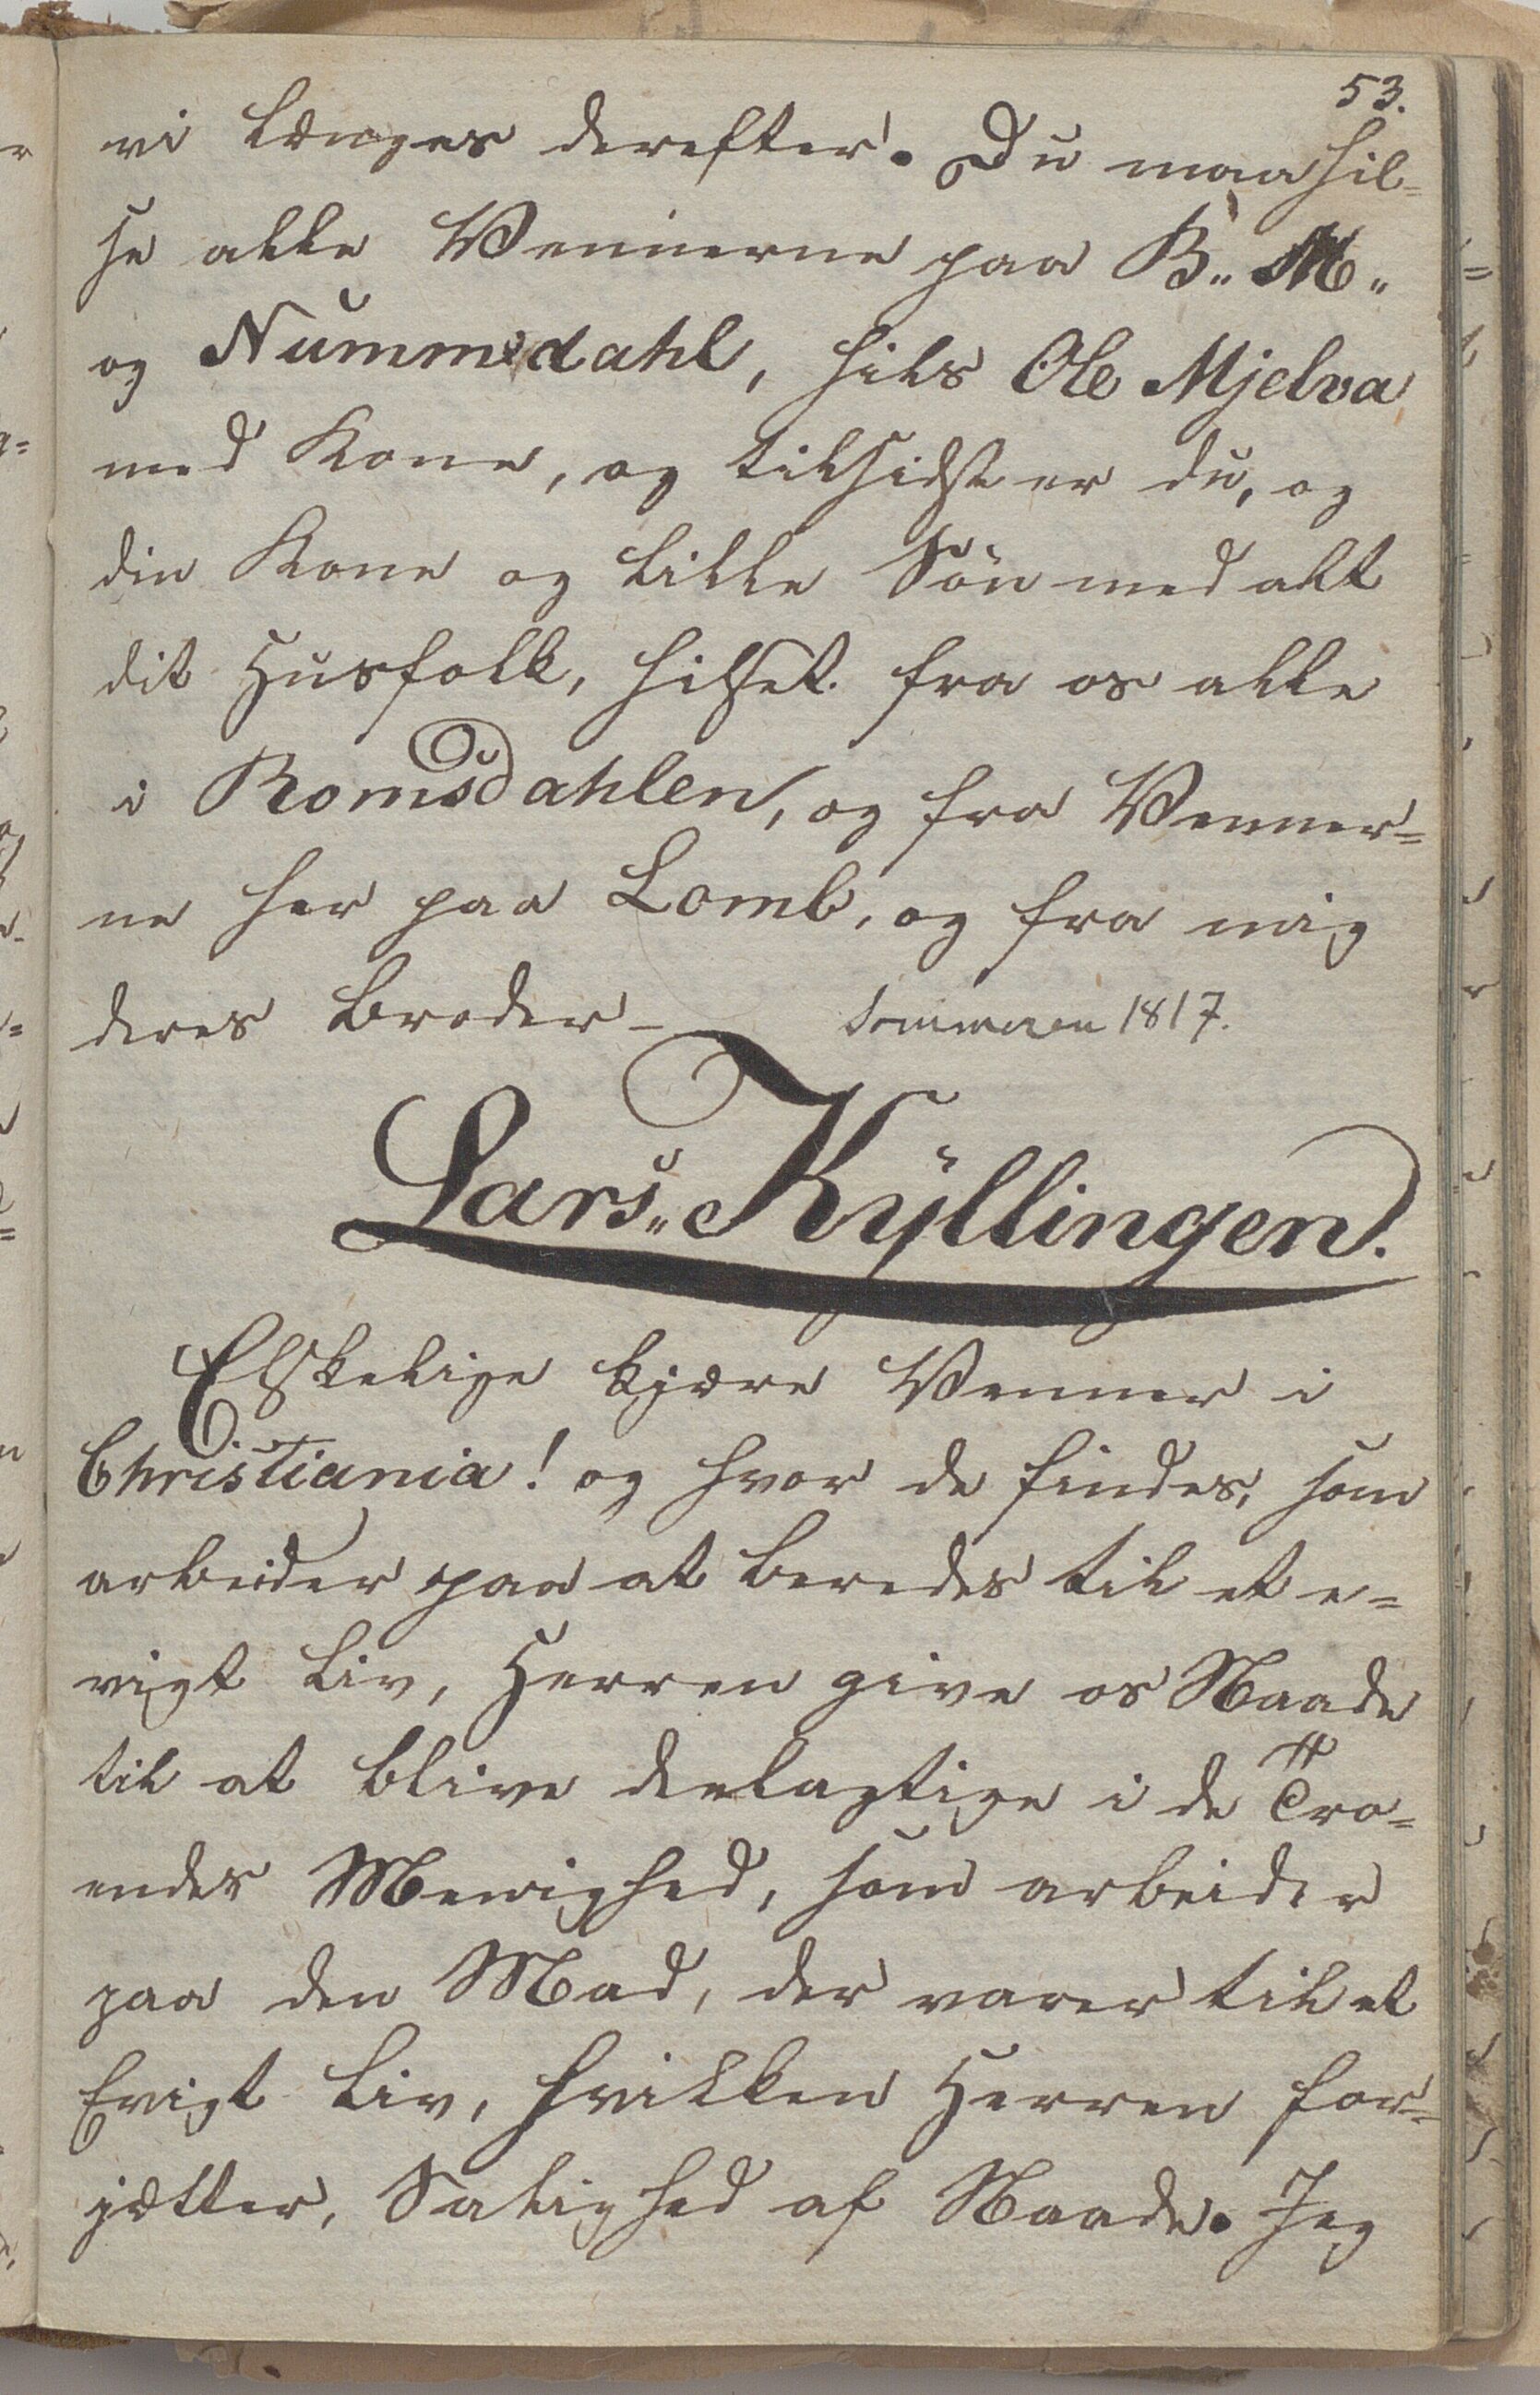 53.
vi længes derefter. Du maa hil-
se alle Vennerne paa B„ M„
og Nummedahl, hils Ole Mjelva
med Kone, og tilsidst er du, og
din Kone og lille Søn med alt
dit Huusfolk, hilset fra os alle
i Romsdahlen, og fra Venner-
ne her paa Lomb, og fra mig
deres Broder – Sommeren 1817.
Lars„ Kÿllingen.
Elskelige kjære Venner i
Christiania! og hvor de findes, som
arbeider paa at beredes til et e-
vigt Liv, Herren give os Naade
til at blive deelagtige i de Tro-
endes Menighed, som arbeider
paa den Mad, der varer til et
Evigt Liv, hvilken Herren for-
jætter, Salighed af Naade. Jeg